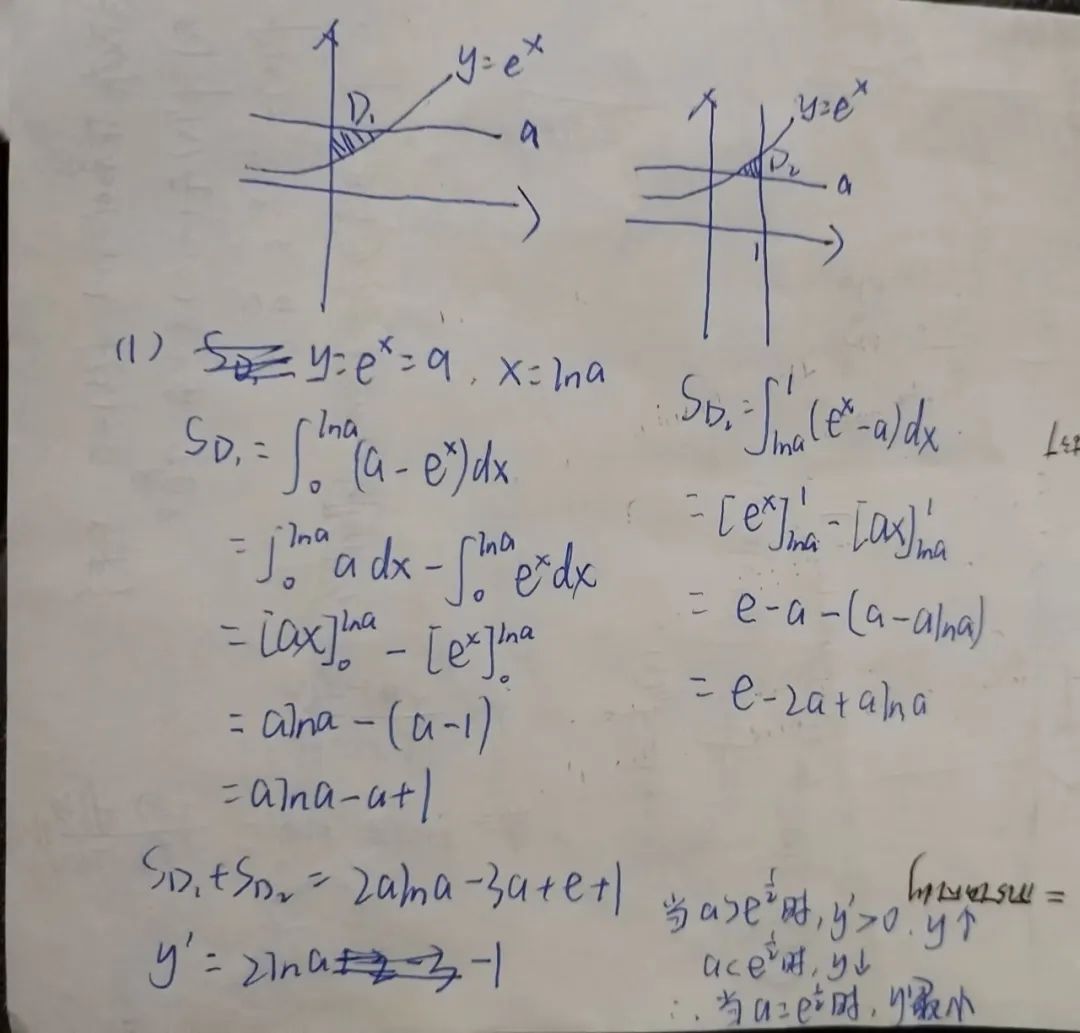 y=e^x
D₁
a
y=e^x
D₂
a
1
(1) y=e^x=a, x=lna
S_D₁=∫₀^{lna}(a-e^x)dx
=∫₀^{lna} a dx-∫₀^{lna} e^x dx
=[ax]₀^{lna}-[e^x]₀^{lna}
=alna-(a-1)
=alna-a+1
S_D₂=∫_{lna}^1(e^x-a)dx
=[e^x]_{lna}^1-[ax]_{lna}^1
=e-a-(a-alna)
=e-2a+alna
S_D₁+S_D₂=2alna-3a+e+1
y'=2lna-1
当a>e^{1/2}时,y'>0.y↑
a<e^{1/2}时,y↓
∴当a=e^{1/2}时,y最小